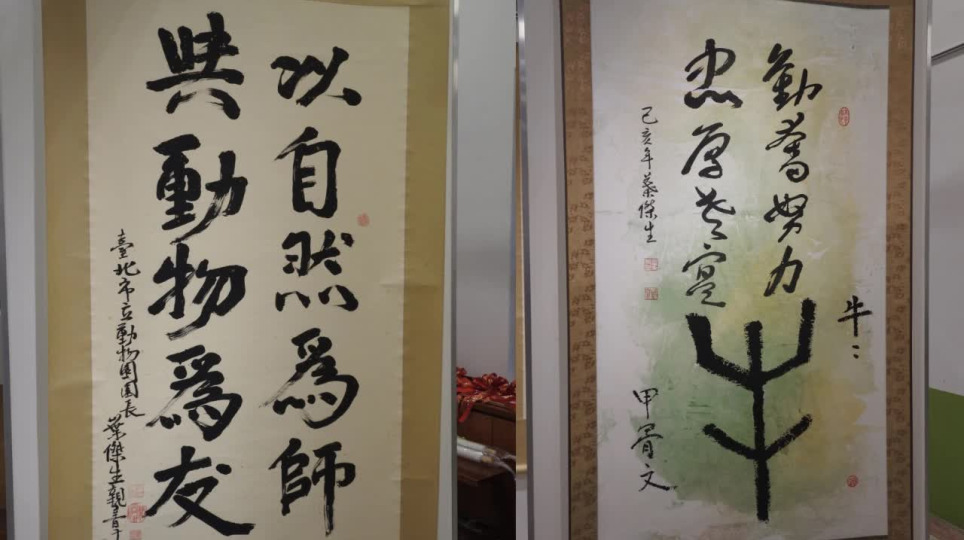 以自然爲師
與動物爲友
臺北市立動物園園長
葉傑生親書
勤奮努力
忠厚老實
己亥年葉傑生
牛：
甲骨文